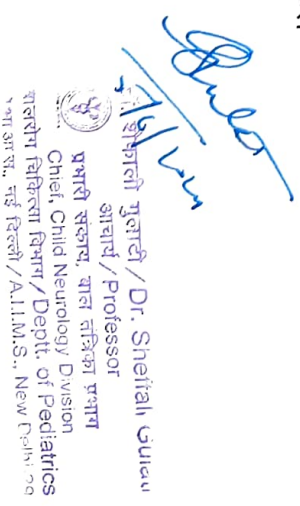 शेफाली गुलाटी / Dr. Sheffali Gulati
आचार्य / Professor
प्रभारी संकाय, बाल तंत्रिका प्रभाग
Chief, Child Neurology Division
बालरोग चिकित्सा विभाग / Deptt. of Pediatrics
नई दिल्ली / A.I.I.M.S., New Delhi-29